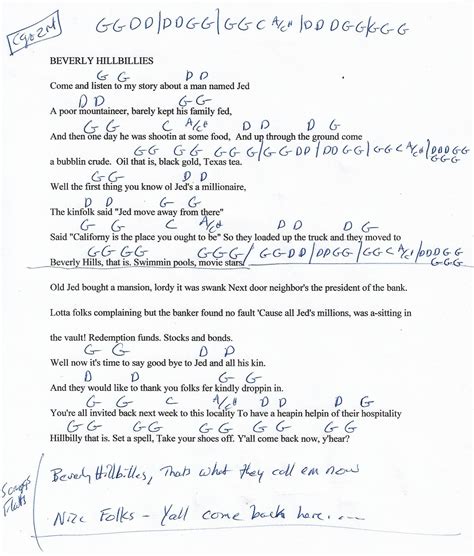 G G D D / D D G G / G G C A/C# / D D D G G / G G G
BEVERLY HILLBILLIES
G G D D
Come and listen to my story about a man named Jed
D D G G
A poor mountaineer, barely kept his family fed,
G G C A/C# D D D G
And then one day he was shootin at some food, And up through the ground come
G G G G G G G G / G G D D / D D G G / G G C A/C# / D D D G G
G G G
a bubblin crude. Oil that is, black gold, Texas tea.
G G D D
Well the first thing you know ol Jed's a millionaire,
D D G G
The kinfolk said "Jed move away from there"
G G C A/C# D D D G
Said "Californy is the place you ought to be" So they loaded up the truck and they moved to
G G G G G G G G / G G D D / D D G G / G G C A/C# / D D D G G
G G G
Beverly Hills, that is. Swimmin pools, movie stars.
Old Jed bought a mansion, lordy it was swank Next door neighbor's the president of the bank.
Lotta folks complaining but the banker found no fault 'Cause all Jed's millions, was a-sitting in
the vault! Redemption funds. Stocks and bonds.
G G D D
Well now it's time to say good bye to Jed and all his kin.
D D G G
And they would like to thank you folks fer kindly droppin in.
G G C A/C# D D D G
You're all invited back next week to this locality To have a heapin helpin of their hospitality
G G G G G G G G
Hillbilly that is. Set a spell, Take your shoes off. Y'all come back now, y'hear?
Beverly Hillbillies, Thats what they call em now
Nice Folks - Yall come back here....